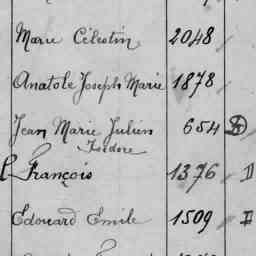 Marie Célestin 2048
Anatole Joseph Marie 1878
Jean Marie Julien 654
Isidore
François 1376 D
Edouard Emile 1509 I